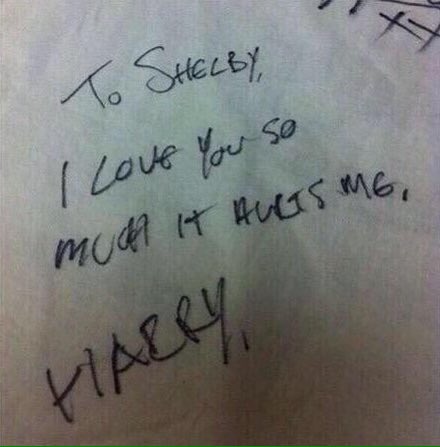 To SHELBY,
I LOVE You SO
MUCH IT HURTS ME.
HARRY.